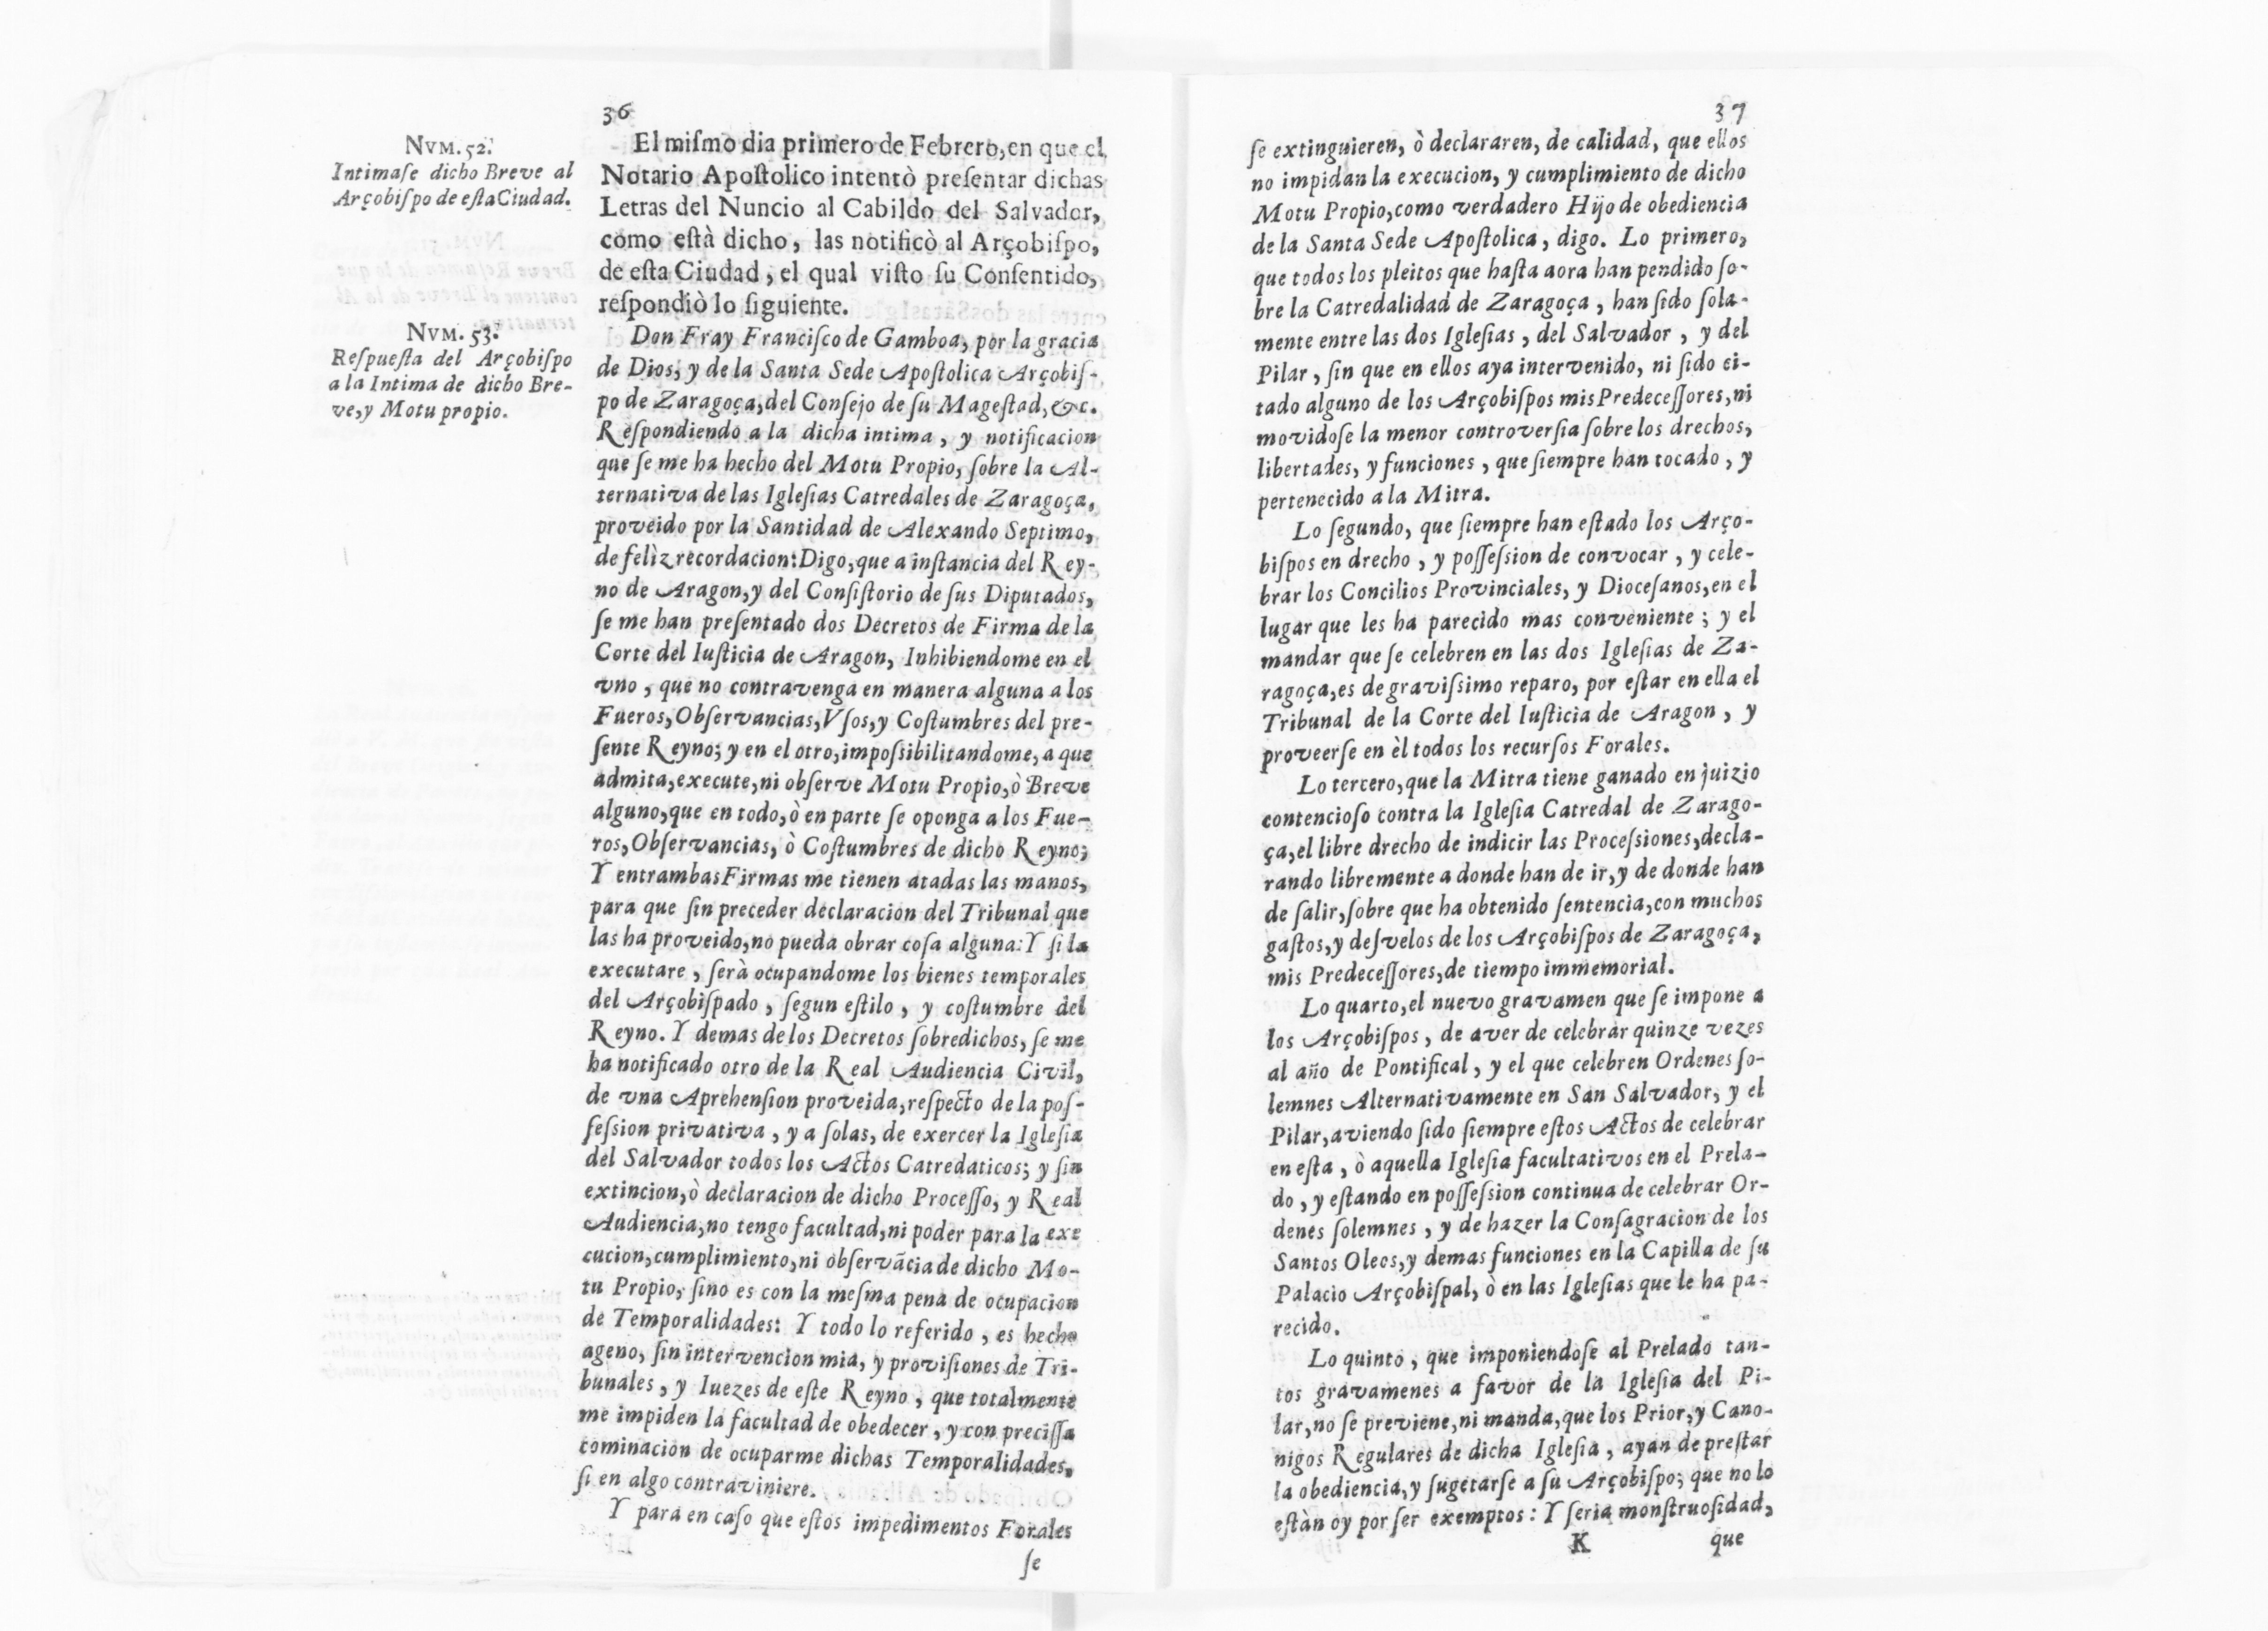 36
NVM. 52.
Intimaſe dicho Breve al
Arçobiſpo de eſta Ciudad.
NVM. 53.
Reſpueſta del Arçobiſpo
a la Intima de dicho Bre-
ve, y Motu propio.
El miſmo dia primero de Febrero, en que el
Notario Apoſtolico intentò preſentar dichas
Letras del Nuncio al Cabildo del Salvador,
como eſtà dicho, las notificò al Arçobiſpo,
de eſta Ciudad, el qual viſto ſu Conſentido,
reſpondiò lo ſiguiente.
Don Fray Franciſco de Gamboa, por la gracia
de Dios, y de la Santa Sede Apoſtolica Arçobiſ-
po de Zaragoça, del Conſejo de ſu Mageſtad, &c.
Reſpondiendo a la dicha intima, y notificacion
que ſe me ha hecho del Motu Propio, ſobre la Al-
ternativa de las Igleſias Catredales de Zaragoça,
proveido por la Santidad de Alexando Septimo,
de felìz recordacion: Digo, que a inſtancia del Rey-
no de Aragon, y del Conſiſtorio de ſus Diputados,
ſe me han preſentado dos Decretos de Firma de la
Corte del Iuſticia de Aragon, Inhibiendome en el
vno, que no contravenga en manera alguna a los
Fueros, Obſervancias, Vſos, y Coſtumbres del pre-
ſente Reyno; y en el otro, impoſsibilitandome, a que
admita, execute, ni obſerve Motu Propio, ò Breve
alguno, que en todo, ò en parte ſe oponga a los Fue-
ros, Obſervancias, ò Coſtumbres de dicho Reyno;
Y entrambas Firmas me tienen atadas las manos,
para que ſin preceder declaracion del Tribunal que
las ha proveido, no pueda obrar coſa alguna: Y ſi la
executare, ſerà ocupandome los bienes temporales
del Arçobiſpado, ſegun eſtilo, y coſtumbre del
Reyno. Y demas de los Decretos ſobredichos, ſe me
ha notificado otro de la Real Audiencia Civil,
de vna Aprehenſion proveida, reſpecto de la poſ-
ſeſsion privativa, y a ſolas, de exercer la Igleſia
del Salvador todos los Actos Catredaticos; y ſin
extincion, ò declaracion de dicho Proceſſo, y Real
Audiencia, no tengo facultad, ni poder para la exe
cucion, cumplimiento, ni obſervãcia de dicho Mo-
tu Propio, ſino es con la meſma pena de ocupacion
de Temporalidades: Y todo lo referido, es hecho
ageno, ſin intervencion mia, y proviſiones de Tri-
bunales, y Iuezes de eſte Reyno, que totalmente
me impiden la facultad de obedecer, y con preciſſa
cominacion de ocuparme dichas Temporalidades,
ſi en algo contraviniere.
Y para en caſo que eſtos impedimentos Forales
ſe
37
ſe extinguieren, ò declararen, de calidad, que ellos
no impidan la execucion, y cumplimiento de dicho
Motu Propio, como verdadero Hijo de obediencia
de la Santa Sede Apoſtolica, digo. Lo primero,
que todos los pleitos que haſta aora han pendido ſo-
bre la Catredalidad de Zaragoça, han ſido ſola-
mente entre las dos Igleſias, del Salvador, y del
Pilar, ſin que en ellos aya intervenido, ni ſido ci-
tado alguno de los Arçobiſpos mis Predeceſſores, ni
movidoſe la menor controverſia ſobre los drechos,
libertades, y funciones, que ſiempre han tocado, y
pertenecido a la Mitra.
Lo ſegundo, que ſiempre han eſtado los Arço-
biſpos en drecho, y poſſeſsion de convocar, y cele-
brar los Concilios Provinciales, y Dioceſanos, en el
lugar que les ha parecido mas conveniente; y el
mandar que ſe celebren en las dos Igleſias de Za-
ragoça, es de graviſsimo reparo, por eſtar en ella el
Tribunal de la Corte del Iuſticia de Aragon, y
proveerſe en èl todos los recurſos Forales.
Lo tercero, que la Mitra tiene ganado en juizio
contencioſo contra la Igleſia Catredal de Zarago-
ça, el libre drecho de indicir las Proceſsiones, decla-
rando libremente a donde han de ir, y de donde han
de ſalir, ſobre que ha obtenido ſentencia, con muchos
gaſtos, y deſvelos de los Arçobiſpos de Zaragoça,
mis Predeceſſores, de tiempo immemorial.
Lo quarto, el nuevo gravamen que ſe impone a
los Arçobiſpos, de aver de celebrar quinze vezes
al año de Pontifical, y el que celebren Ordenes ſo-
lemnes Alternativamente en San Salvador, y el
Pilar, aviendo ſido ſiempre eſtos Actos de celebrar
en eſta, ò aquella Igleſia facultativos en el Prela-
do, y eſtando en poſſeſsion continua de celebrar Or-
denes ſolemnes, y de hazer la Conſagracion de los
Santos Oleos, y demas funciones en la Capilla de ſu
Palacio Arçobiſpal, ò en las Igleſias que le ha pa-
recido.
Lo quinto, que imponiendoſe al Prelado tan-
tos gravamenes a favor de la Igleſia del Pi-
lar, no ſe previene, ni manda, que los Prior, y Cano-
nigos Regulares de dicha Igleſia, ayan de preſtar
la obediencia, y ſugetarſe a ſu Arçobiſpo; que no lo
eſtàn oy por ſer exemptos: Y ſeria monſtruoſidad,
K
que